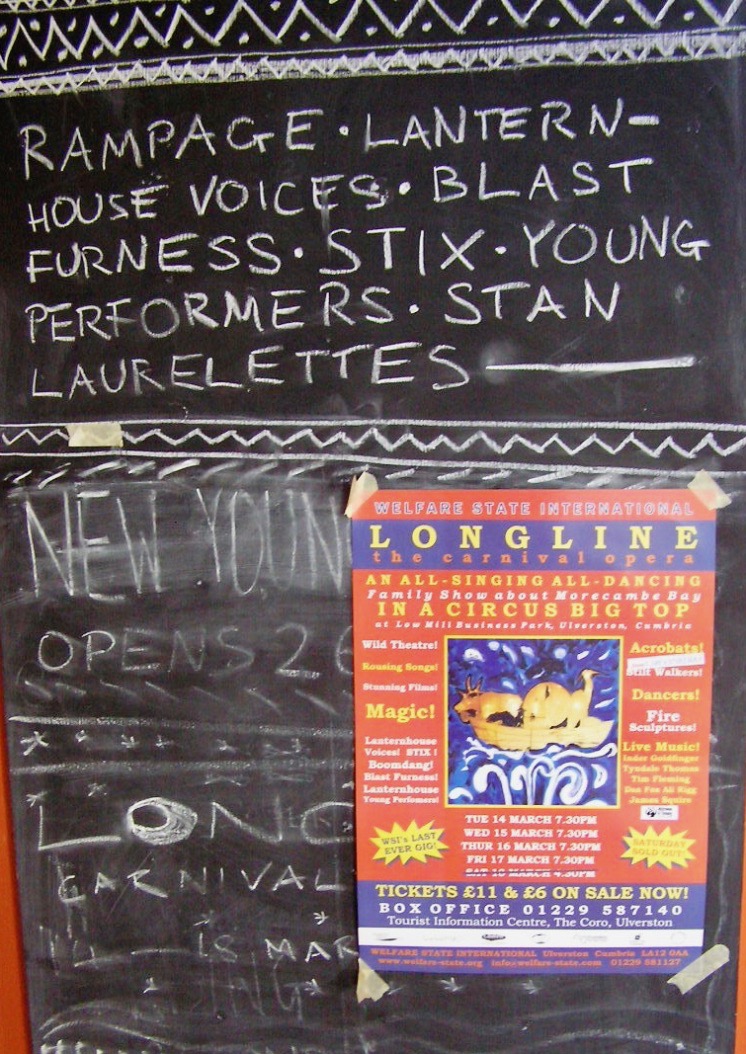 RAMPAGE · LANTERN-
HOUSE VOICES · BLAST
FURNESS · STIX · YOUNG
PERFORMERS · STAN
LAURELETTES
NEW YOUN
OPENS 26
LONG
CARNIVAL
IS MAR
WELFARE STATE INTERNATIONAL
LONGLINE
the carnival opera
AN ALL-SINGING ALL-DANCING
Family Show about Morecambe Bay
IN A CIRCUS BIG TOP
at Low Mill Business Park, Ulverston, Cumbria
Wild Theatre!
Rousing Songs!
Stunning Films!
Magic!
Lanternhouse
Voices! STIX!
Boomdang!
Blast Furness!
Lanternhouse
Young Performers!
Acrobats!
Stilt Walkers!
Dancers!
Fire
Sculptures!
Live Music!
Inder Goldfinger
Tyndale Thomas
Tim Fleming
Dan Fox Ali Rigg
James Squire
WSI's LAST
EVER GIG!
TUE 14 MARCH 7.30PM
WED 15 MARCH 7.30PM
THUR 16 MARCH 7.30PM
FRI 17 MARCH 7.30PM
SAT 18 MARCH 4.30PM
SATURDAY
SOLD OUT!
TICKETS £11 & £6 ON SALE NOW!
BOX OFFICE 01229 587140
Tourist Information Centre, The Coro, Ulverston
WELFARE STATE INTERNATIONAL Ulverston Cumbria LA12 0AA
www.welfare-state.org info@welfare-state.com 01229 581127